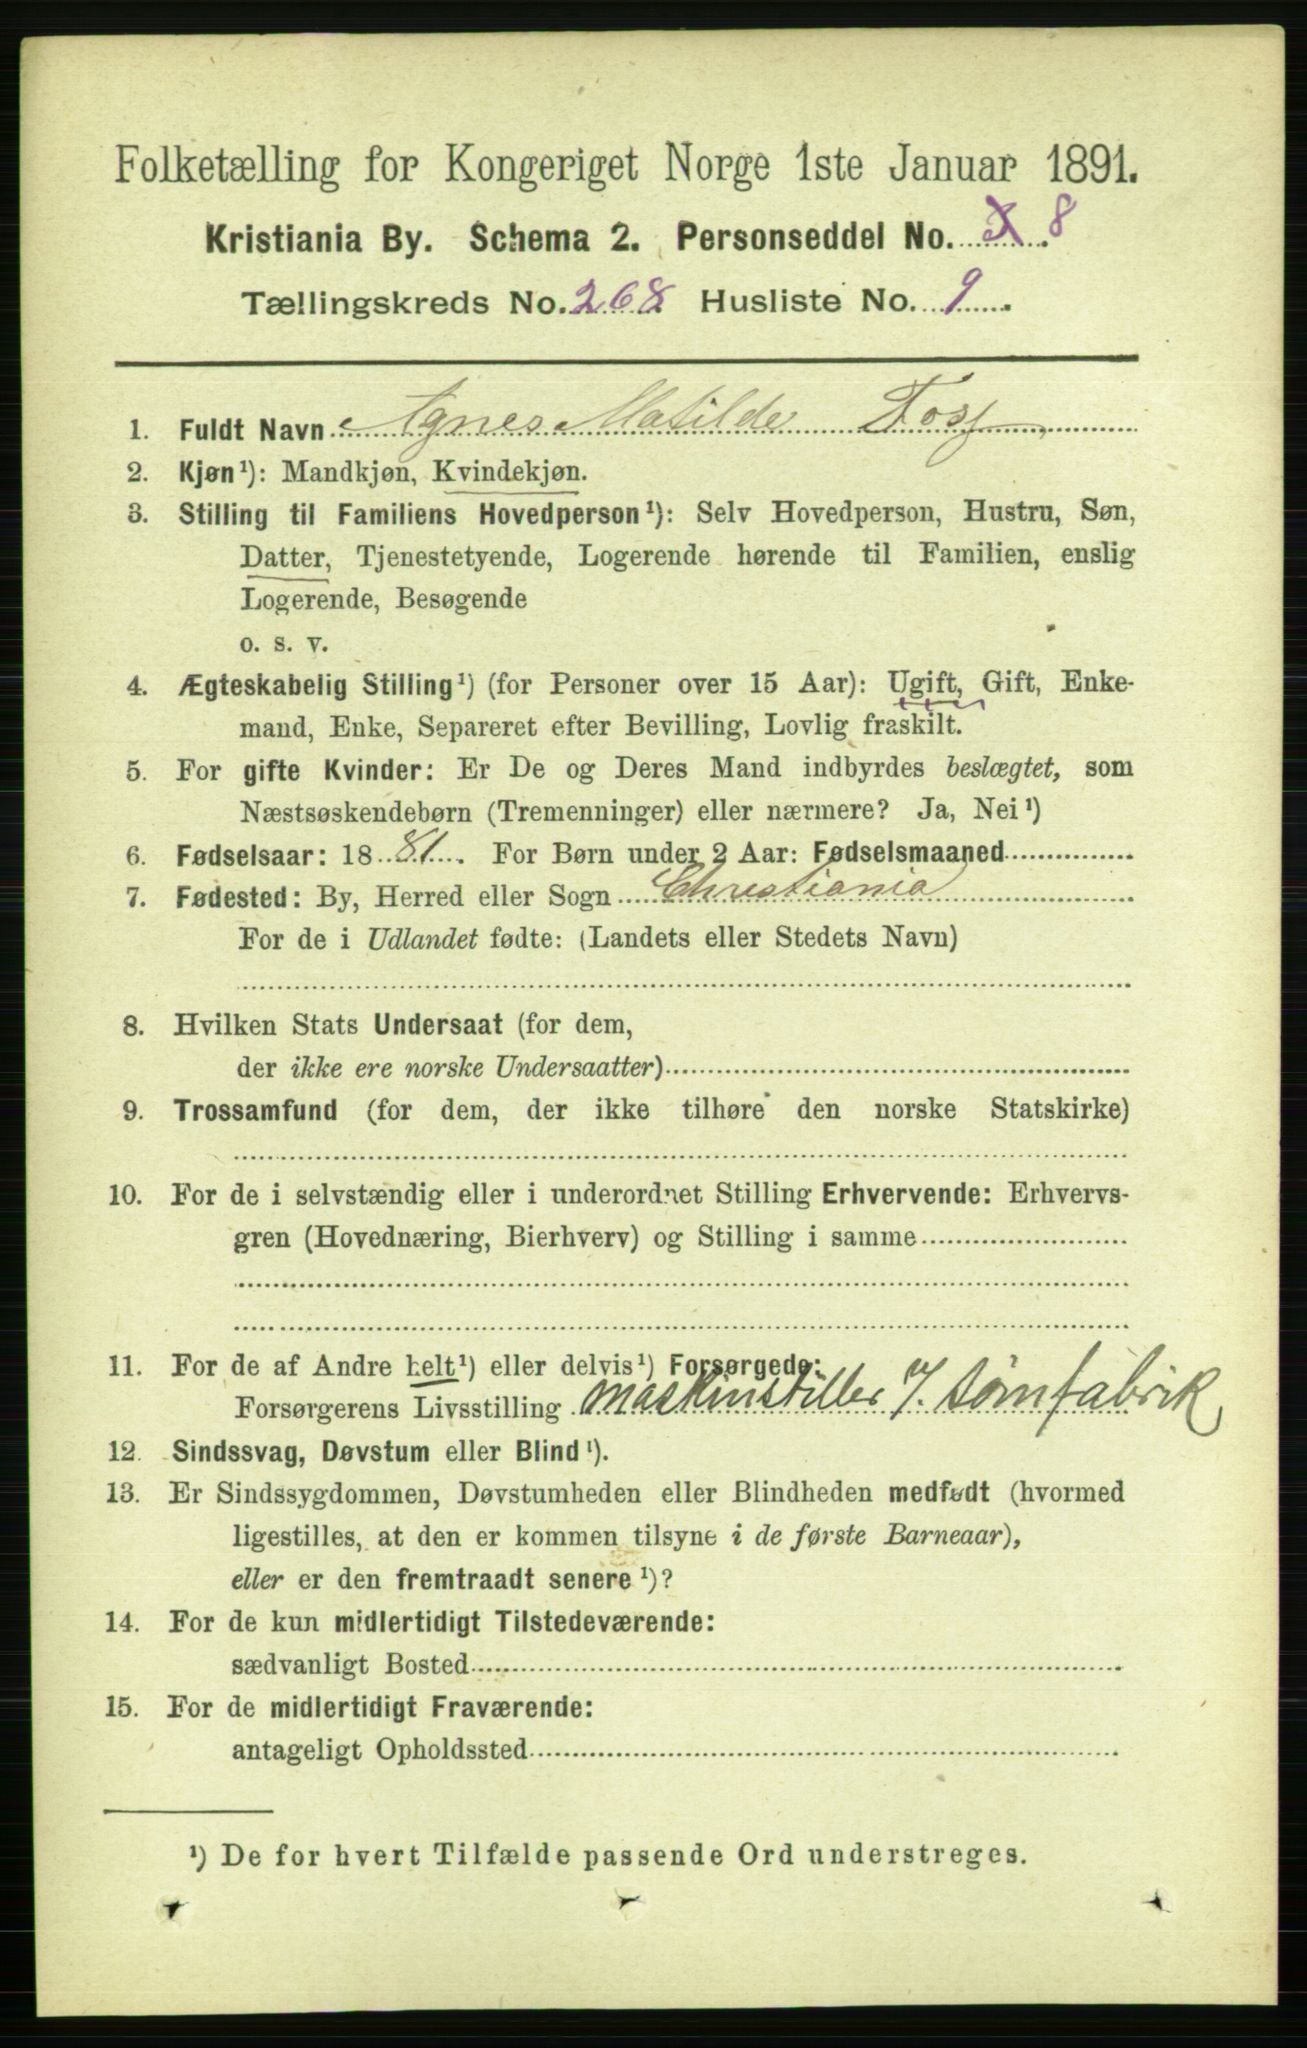 Folketælling for Kongeriget Norge 1ste Januar 1891.
Kristiania By. Schema 2. Personseddel No. 8
Tællingskreds No. 268 Husliste No. 9
1. Fuldt Navn Agnes Matilde Foss
2. Kjøn¹): Mandkjøn, Kvindekjøn.
3. Stilling til Familiens Hovedperson¹): Selv Hovedperson, Hustru, Søn,
Datter, Tjenestetyende, Logerende hørende til Familien, enslig
Logerende, Besøgende
o. s. v.
4. Ægteskabelig Stilling¹) (for Personer over 15 Aar): Ugift, Gift, Enke-
mand, Enke, Separeret efter Bevilling, Lovlig fraskilt.
5. For gifte Kvinder: Er De og Deres Mand indbyrdes beslægtet, som
Næstsøskendebørn (Tremenninger) eller nærmere? Ja, Nei¹)
6. Fødselsaar: 1881. For Børn under 2 Aar: Fødselsmaaned
7. Fødested: By, Herred eller Sogn Christiania
For de i Udlandet fødte: (Landets eller Stedets Navn)
8. Hvilken Stats Undersaat (for dem,
der ikke ere norske Undersaatter)
9. Trossamfund (for dem, der ikke tilhøre den norske Statskirke)
10. For de i selvstændig eller i underordnet Stilling Erhvervende: Erhvervs-
gren (Hovednæring, Bierhverv) og Stilling i samme
11. For de af Andre helt¹) eller delvis¹) Forsørgede:
Forsørgerens Livsstilling maskinstiller i sømfabrik
12. Sindssvag, Døvstum eller Blind¹).
13. Er Sindssygdommen, Døvstumheden eller Blindheden medfødt (hvormed
ligestilles, at den er kommen tilsyne i de første Barneaar),
eller er den fremtraadt senere¹)?
14. For de kun midlertidigt Tilstedeværende:
sædvanligt Bosted
15. For de midlertidigt Fraværende:
antageligt Opholdssted
¹) De for hvert Tilfælde passende Ord understreges.